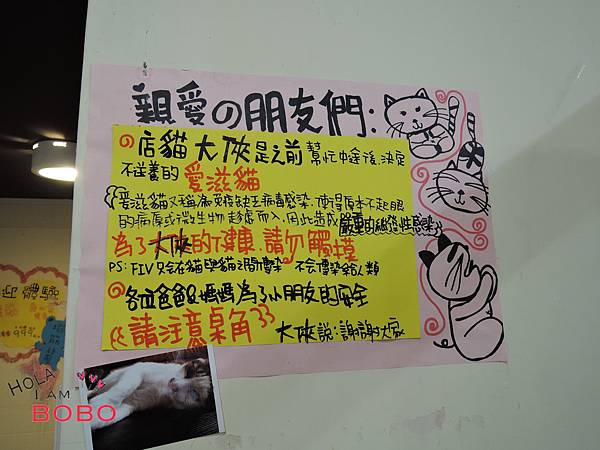 親愛の朋友們:
店貓 大俠是之前 幫忙中途後,決定
不送養的 愛滋貓
愛滋貓又稱為免疫缺乏病毒感染,使得原本不起眼
的病原或微生物 趁虛而入,因此造成嚴重的繼發性感染
為了大俠的健康,請勿觸摸
PS: FIV只會在貓與貓之間傳染 不會傳染給人類
各位爸爸&媽媽為了小朋友的安全
請注意桌角
大俠說:謝謝大家
迎 體驗
HOLA
I AM
BOBO